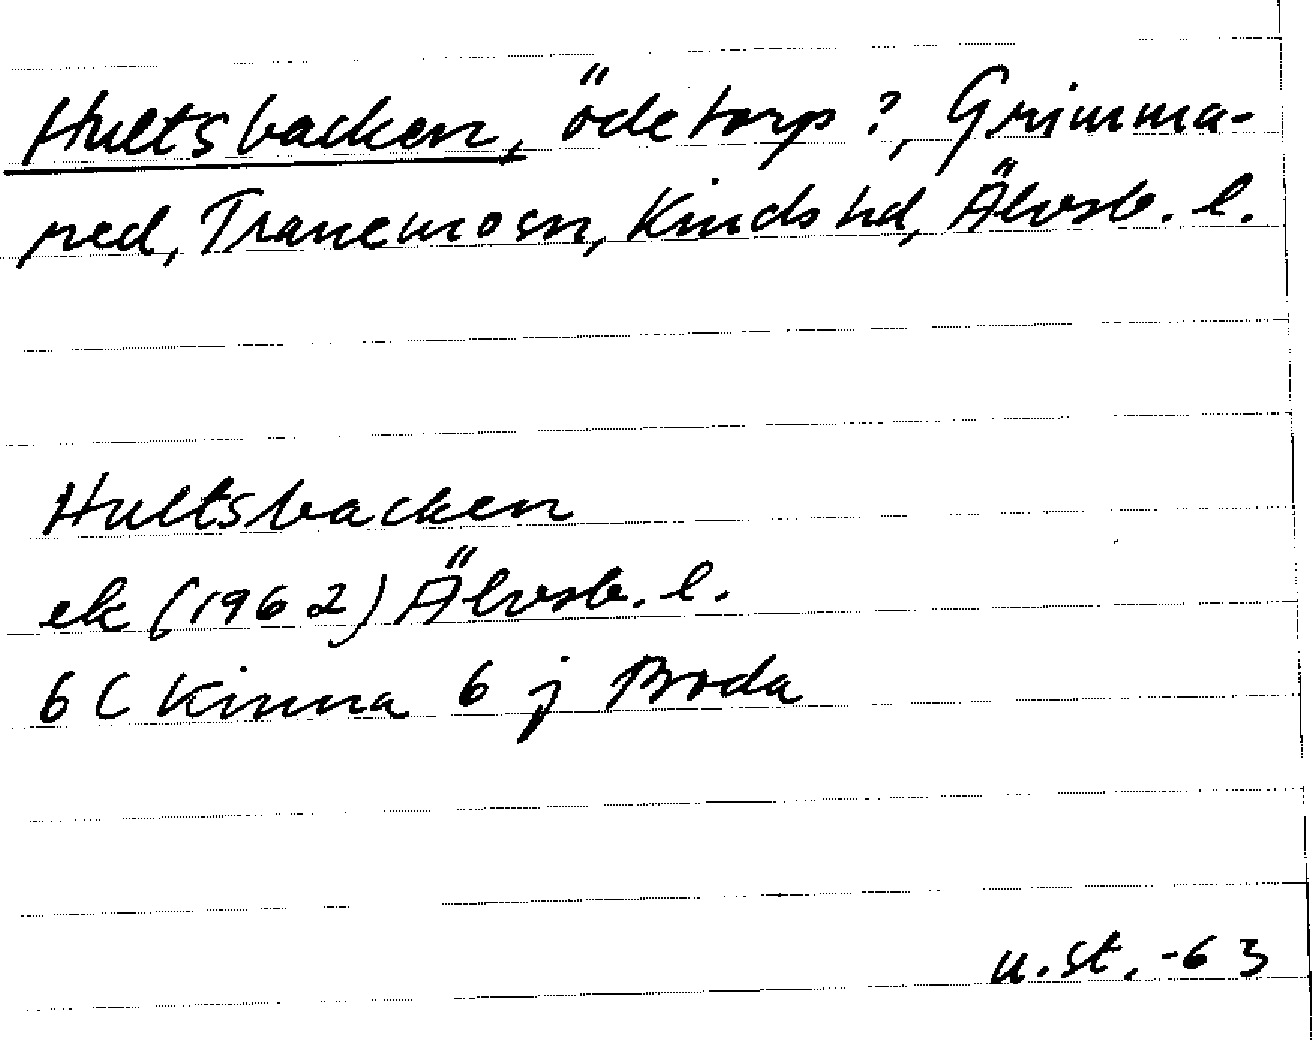 Hultsbacken, ödetorp?, Grimma-
red, Tranemo sn, Kinds hd, Älvsb. l.
Hultsbacken
ek (1962) Älvsb. l.
6 C Kinna 6 j Broda
u.st. -63